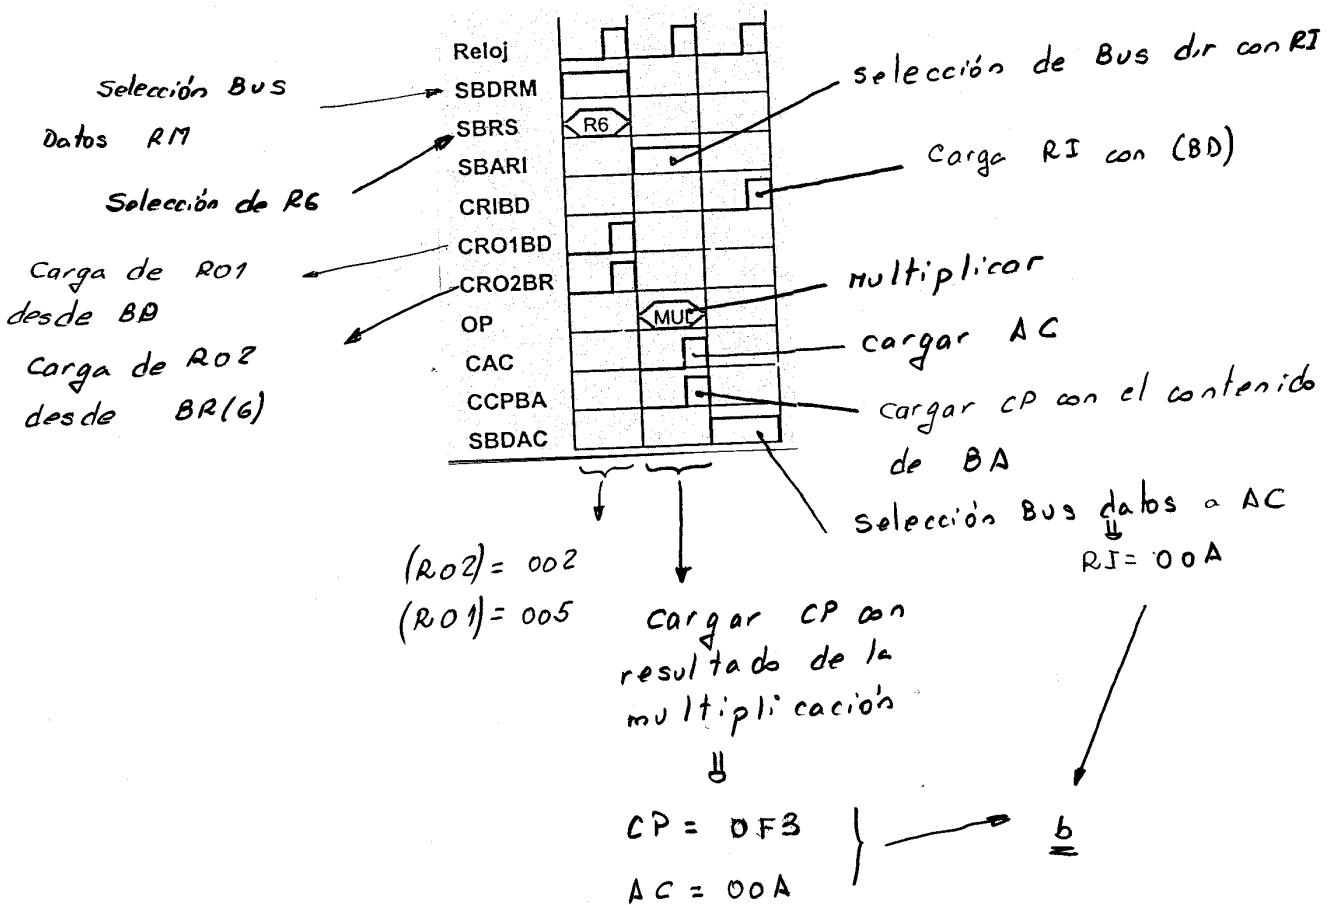 Reloj
SBDRM
SBRS
SBARI
CRIBD
CRO1BD
CRO2BR
OP
CAC
CCPBA
SBDAC
R6
MUL
Selección Bus
Datos RM
Selección de R6
Carga de RO1
desde BD
Carga de RO2
desde BR(6)
Selección de Bus dir con RI
Carga RI con (BD)
Multiplicar
cargar AC
cargar CP con el contenido
de BA
Selección Bus datos a AC
RI = 00A
(RO2) = 002
(RO1) = 005
Cargar CP con
resultado de la
multiplicación
CP = 0F3
AC = 00A
b